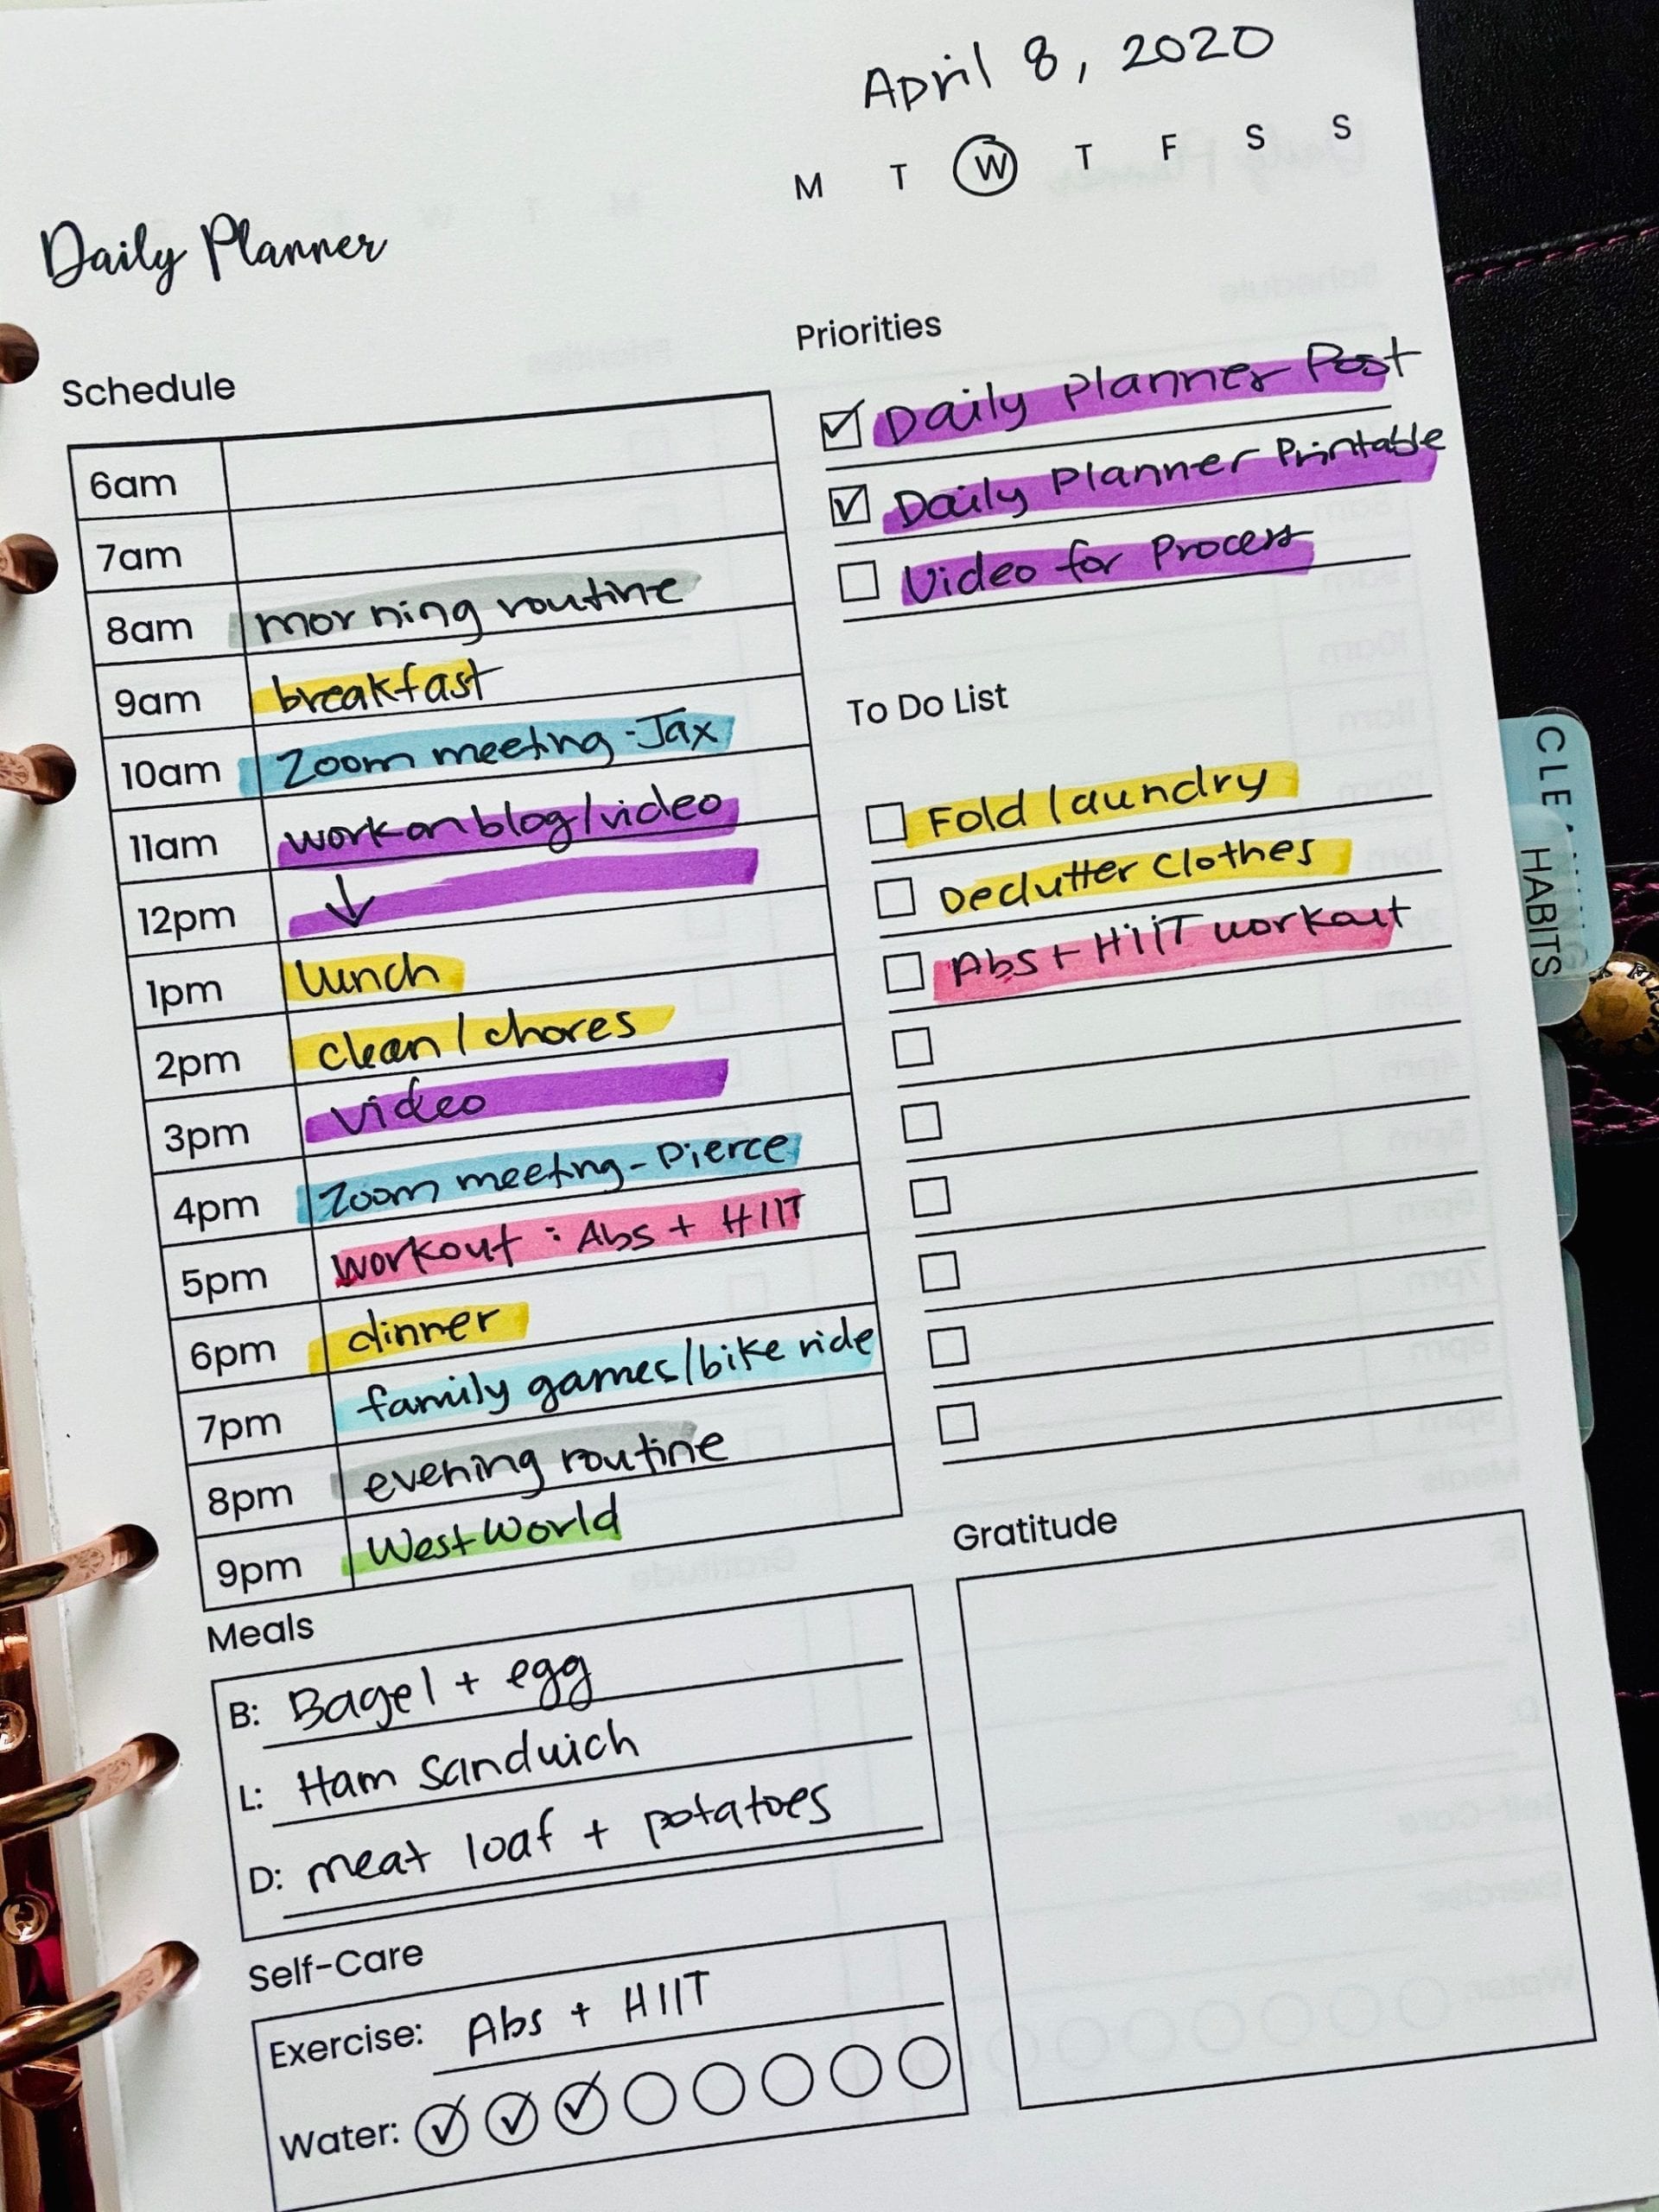 April 8, 2020
M T W T F S S
Daily Planner
Schedule
6am
7am
8am morning routine
9am breakfast
10am Zoom meeting - Jax
11am work on blog/video
12pm ↓
1pm lunch
2pm clean / chores
3pm video
4pm Zoom meeting - Pierce
5pm workout : Abs + HIIT
6pm dinner
7pm family games/bike ride
8pm evening routine
9pm West World
Meals
B: Bagel + egg
L: Ham Sandwich
D: meat loaf + potatoes
Self-Care
Exercise: Abs + HIIT
Water:
Priorities
Daily Planner Post
Daily Planner Printable
Video for Process
To Do List
Fold laundry
Declutter Clothes
Abs + HIIT workout
Gratitude
HABITS